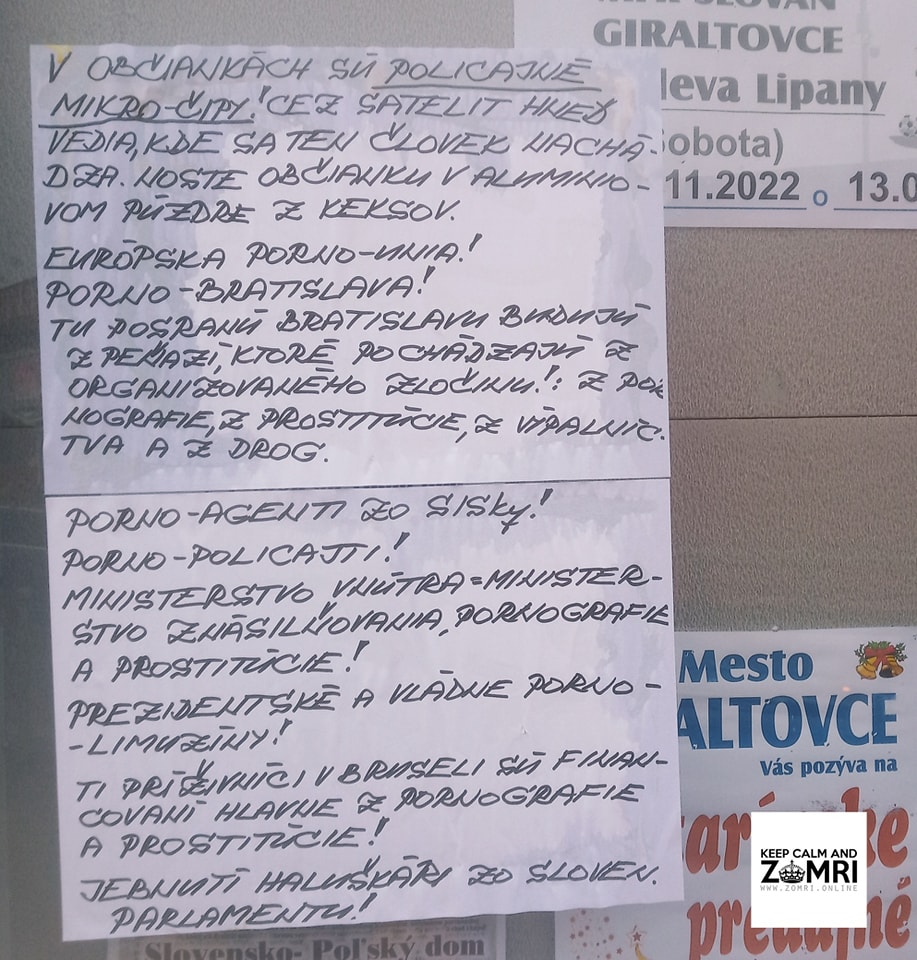 V OBČIANKÁCH SÚ POLICAJNÉ
MIKRO-ČIPY! CEZ SATELIT HNEĎ
VEDIA, KDE SA TEN ČLOVEK NACHÁ-
DZA. NOSTE OBČIANKU V ALUMINIO-
VOM PÚZDRE Z KEKSOV.
EURÓPSKA PORNO-UNIA!
PORNO-BRATISLAVA!
TU POSRANÚ BRATISLAVU BUDUJÚ
Z PEŇAZÍ, KTORÉ POCHÁDZAJÚ Z
ORGANIZOVANÉHO ZLOČINU!: Z POR
NOGRAFIE, Z PROSTITÚCIE, Z VÝPALNÍC-
TVA A Z DROG.
PORNO-AGENTI ZO SISKY!
PORNO-POLICAJTI!
MINISTERSTVO VNÚTRA=MINISTER-
STVO ZNÁSILŇOVANIA, PORNOGRAFIE
A PROSTITÚCIE!
PREZIDENTSKÉ A VLÁDNE PORNO-
-LIMUZÍNY!
TI PRÍŽIVNÍCI V BRUSELI SÚ FINAN-
COVANÍ HLAVNE Z PORNOGRAFIE
A PROSTITÚCIE!
JEBNUTÍ HALUŠKÁRI ZO SLOVEN.
PARLAMENTU!
SLOVAN
GIRALTOVCE
leva Lipany
obota)
11.2022 o 13.0
Mesto
ALTOVCE
Vás pozýva na
ar ke
pre úné
KEEP CALM AND
ZOMRI
WWW.ZOMRI.ONLINE
Slovensko- Poľský dom